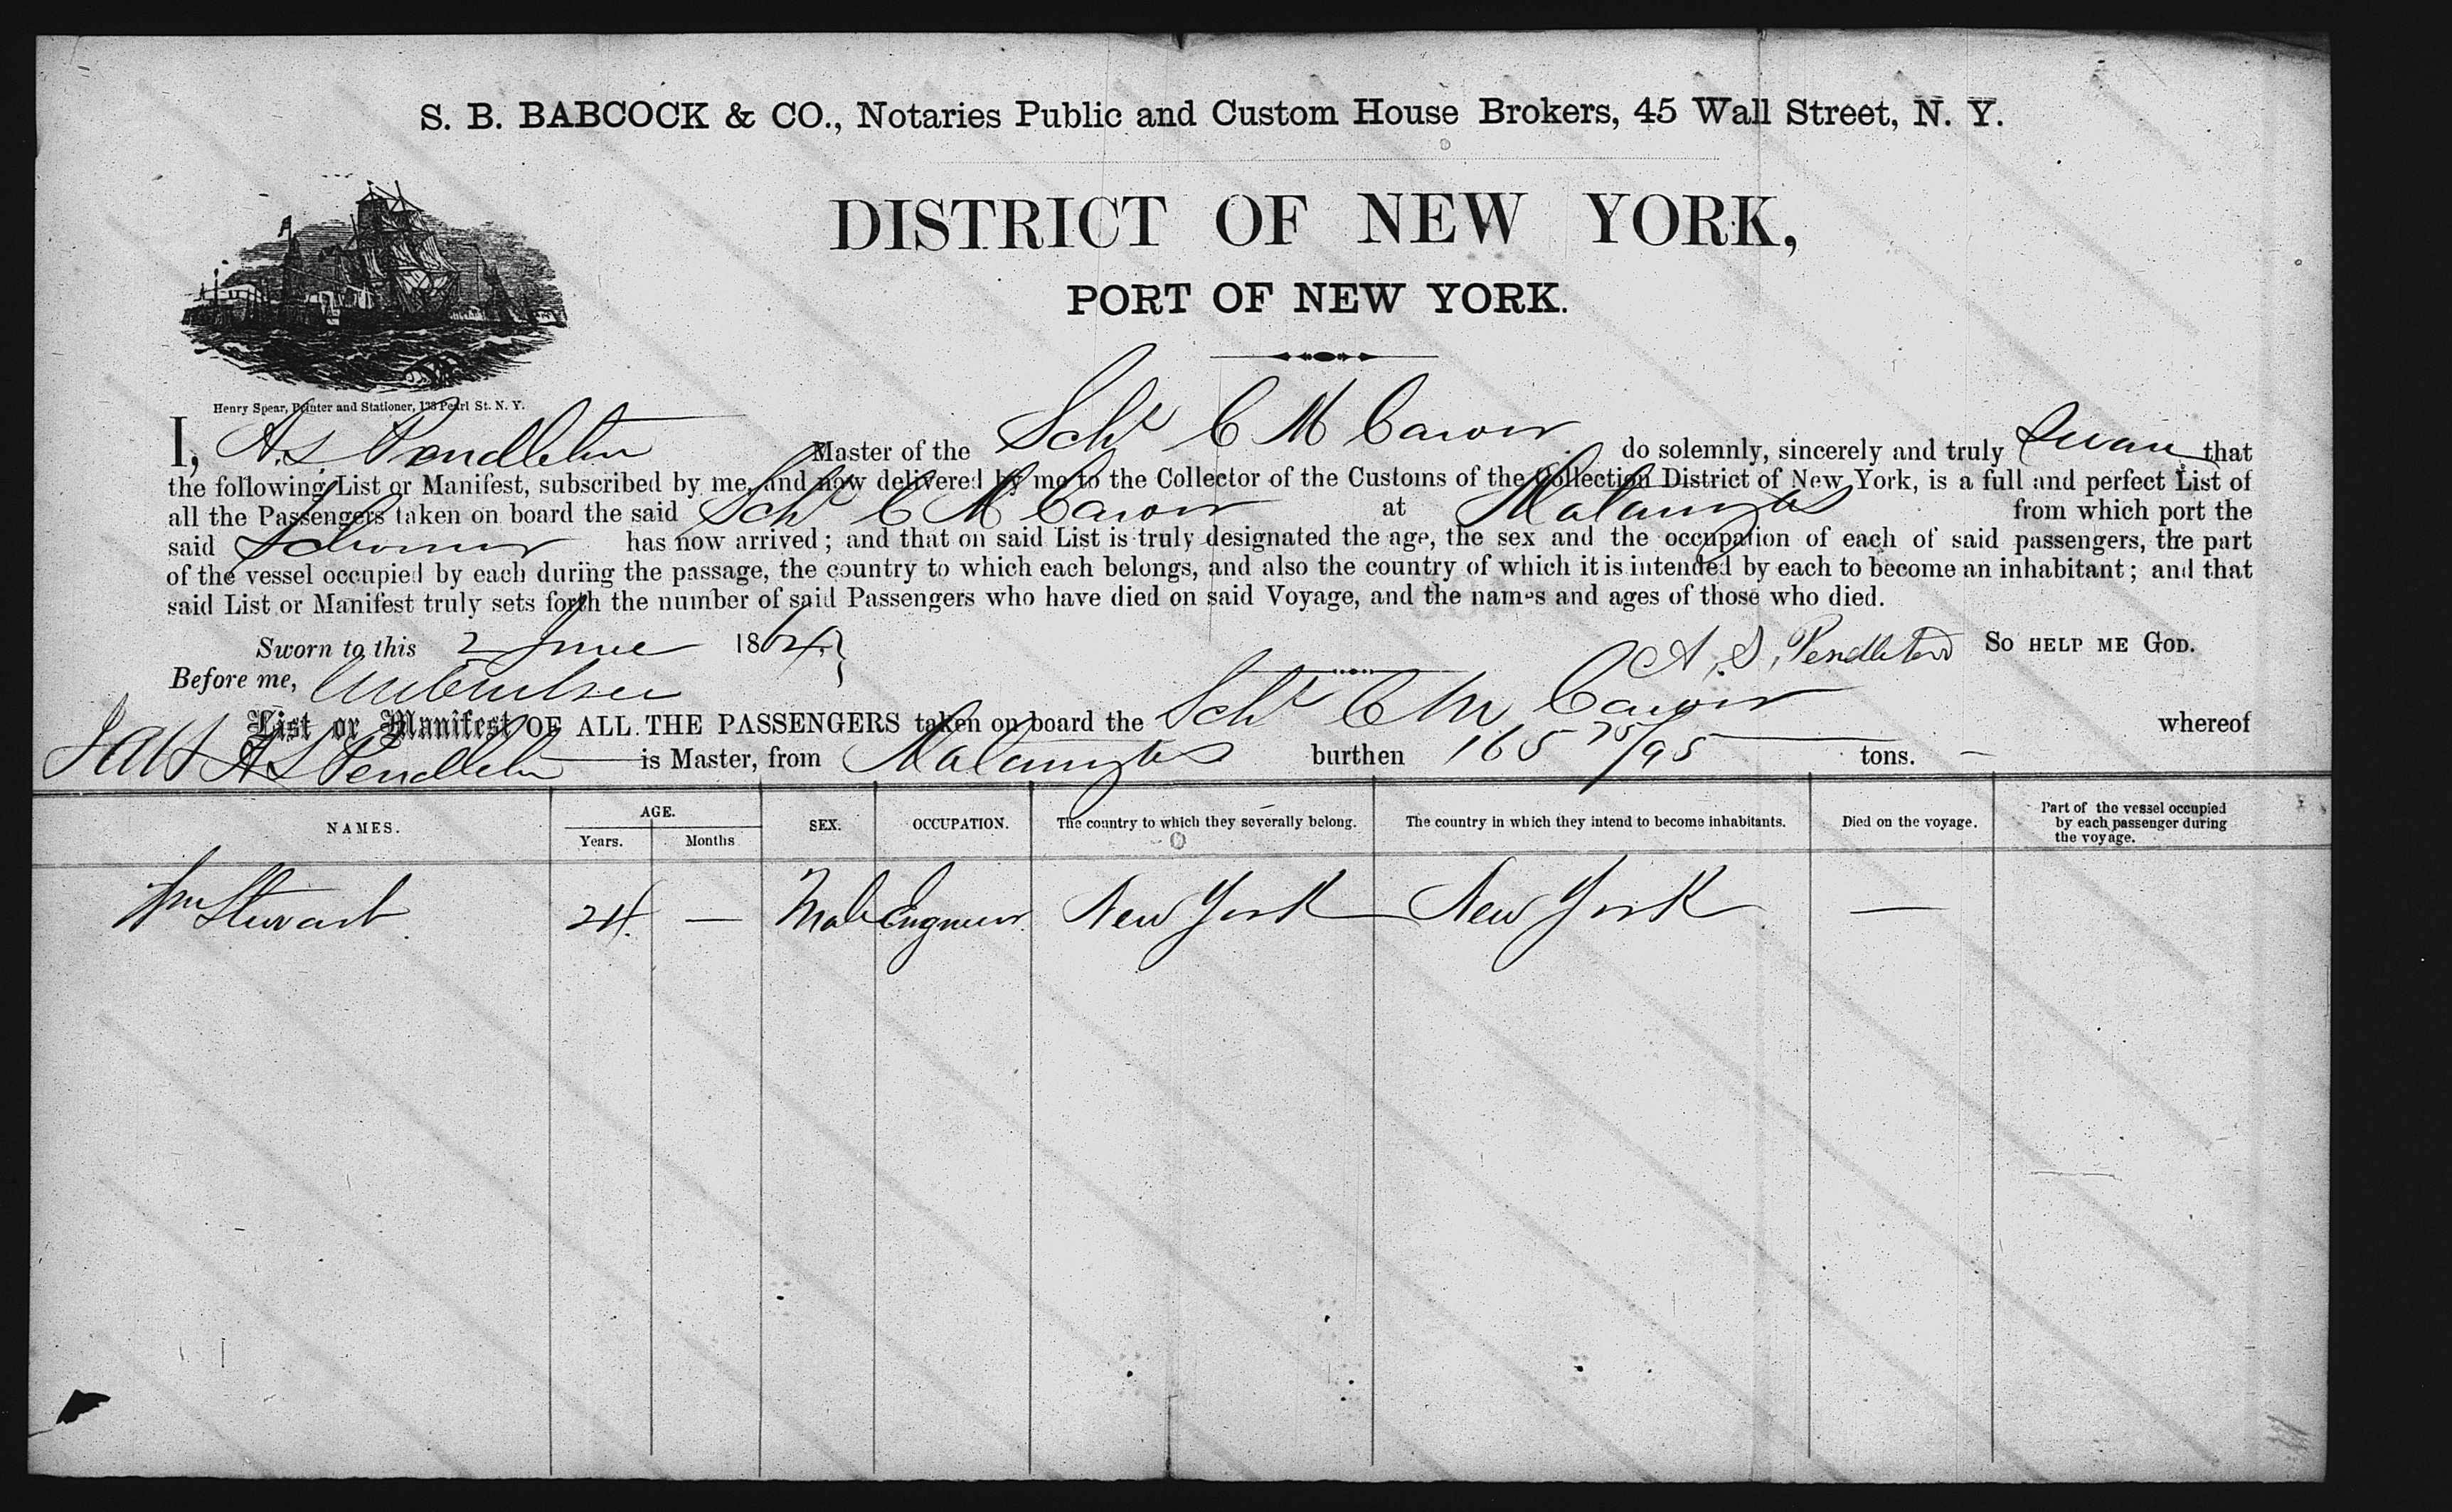 S. B. BABCOCK & CO., Notaries Public and Custom House Brokers, 45 Wall Street, N. Y.
DISTRICT OF NEW YORK,
PORT OF NEW YORK.
Henry Spear, Printer and Stationer, 133 Pearl St. N. Y.
I, A. S. Pendleton Master of the Schr C M Carver do solemnly, sincerely and truly Swear that
the following List or Manifest, subscribed by me, and now delivered by me to the Collector of the Customs of the Collection District of New York, is a full and perfect List of
all the Passengers taken on board the said Schr C M Carver at Matanzas from which port the
said Schooner has now arrived; and that on said List is truly designated the age, the sex and the occupation of each of said passengers, the part
of the vessel occupied by each during the passage, the country to which each belongs, and also the country of which it is intended by each to become an inhabitant; and that
said List or Manifest truly sets forth the number of said Passengers who have died on said Voyage, and the names and ages of those who died.
Sworn to this 2 June 1864 A. S. Pendleton SO HELP ME GOD.
Before me,
List or Manifest OF ALL THE PASSENGERS taken on board the Schr C M Carver whereof
A S Pendleton is Master, from Matanzas burthen 165 75/95 tons. —
NAMES. AGE. Years. Months SEX. OCCUPATION. The country to which they severally belong. The country in which they intend to become inhabitants. Died on the voyage. Part of the vessel occupied by each passenger during the voyage.
Wm Stewart 24 — Male Engineer New York New York —